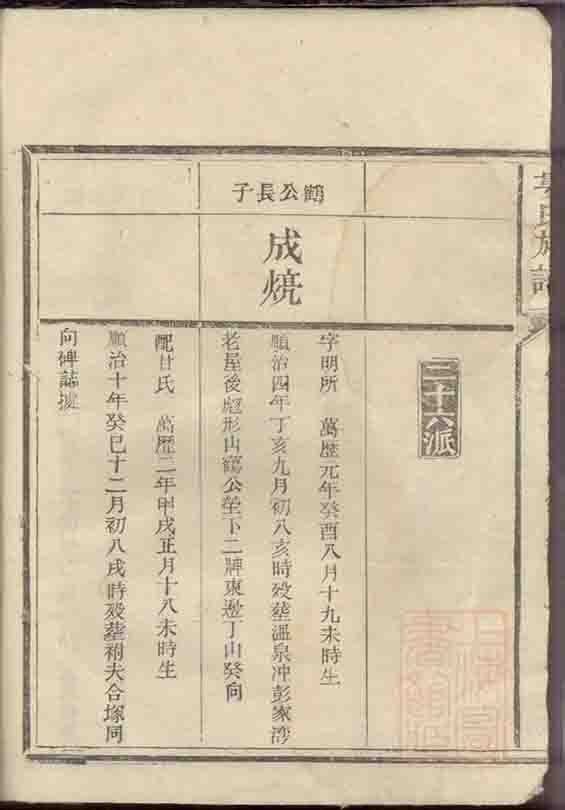 氏族譜
二十六派
鶴公長子
成燒
字明所 萬歷元年癸酉八月十九未時生
順治四年丁亥九月初八亥時殁塟溫泉冲彭家灣
老屋後魁形山鶴公塋下二牌東邊丁山癸向
配甘氏 萬歷二年甲戌正月十八未時生
順治十年癸巳十二月初八戌時殁塟祔夫合塚同
向碑誌據